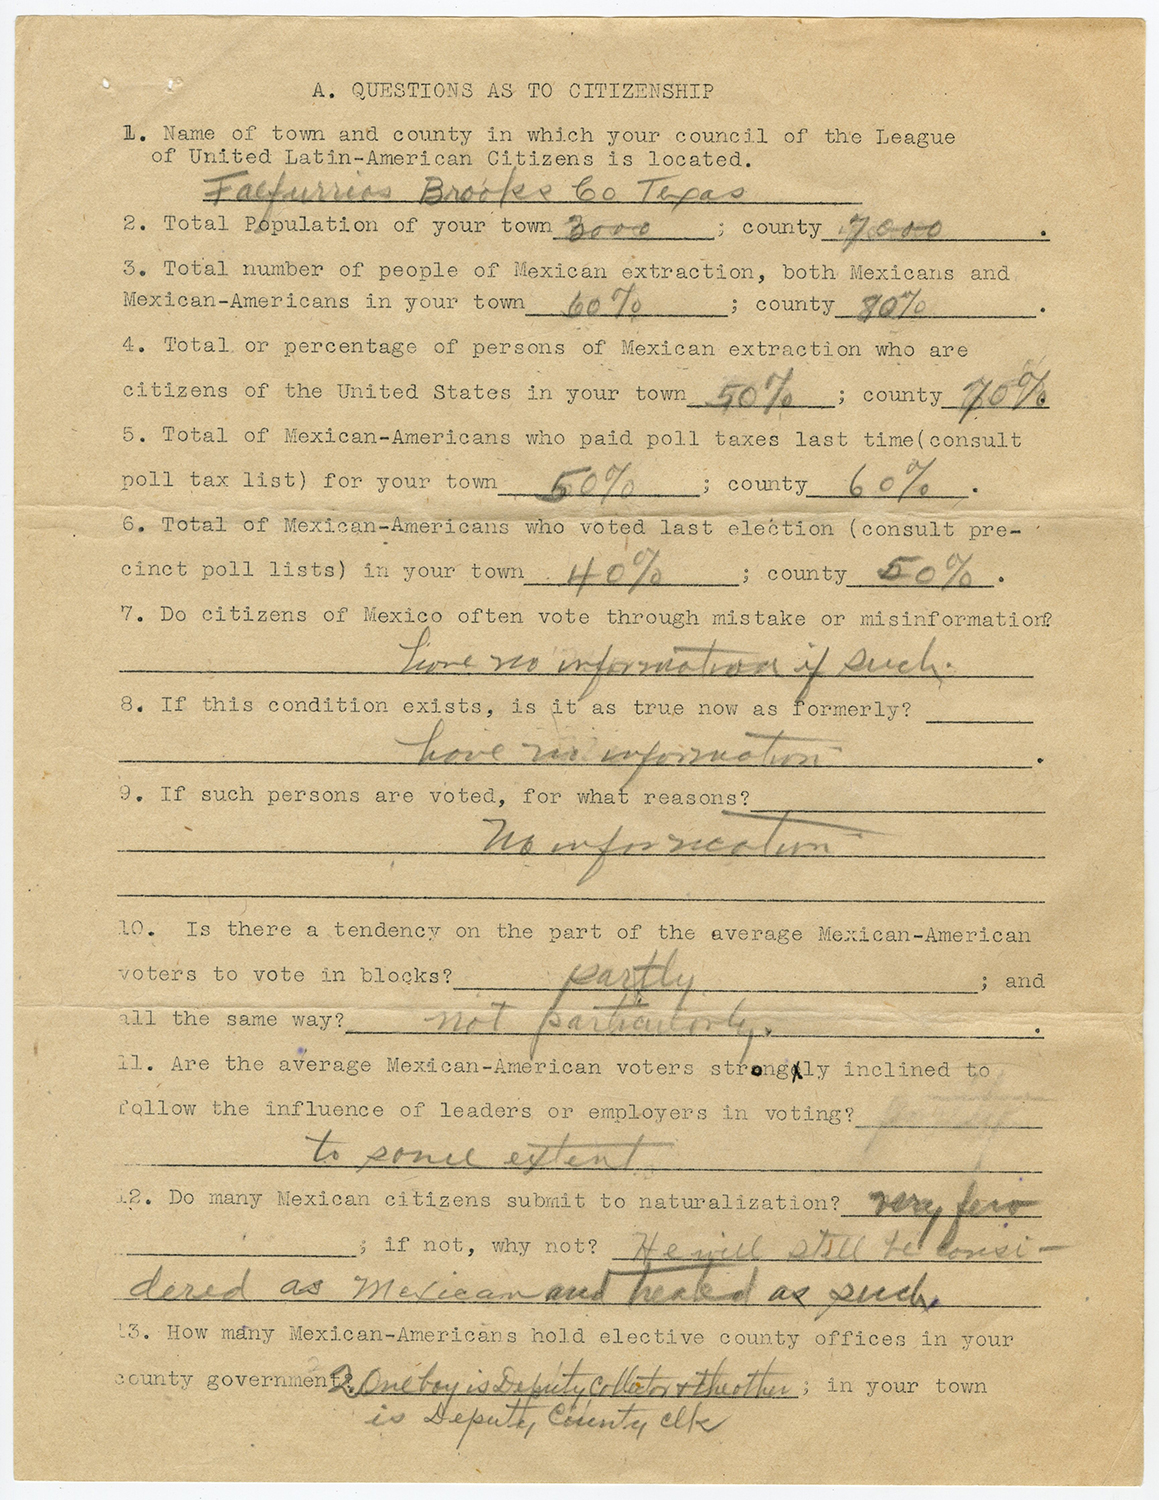 A. QUESTIONS AS TO CITIZENSHIP
1. Name of town and county in which your council of the League
of United Latin-American Citizens is located.
Falfurrias Brooks Co Texas
2. Total Population of your town 3000 ; county 7000 .
3. Total number of people of Mexican extraction, both Mexicans and
Mexican-Americans in your town 60% ; county 80% .
4. Total or percentage of persons of Mexican extraction who are
citizens of the United States in your town 50% ; county 70% .
5. Total of Mexican-Americans who paid poll taxes last time(consult
poll tax list) for your town 50% ; county 60% .
6. Total of Mexican-Americans who voted last election (consult pre-
cinct poll lists) in your town 40% ; county 50% .
7. Do citizens of Mexico often vote through mistake or misinformation?
have no information if such.
8. If this condition exists, is it as true now as formerly?
have no information .
9. If such persons are voted, for what reasons?
No information
10. Is there a tendency on the part of the average Mexican-American
voters to vote in blocks? partly ; and
all the same way? not particularly. .
11. Are the average Mexican-American voters strongly inclined to
follow the influence of leaders or employers in voting?
to some extent
12. Do many Mexican citizens submit to naturalization? very few
; if not, why not? He will still be consi-
dered as Mexican and treated as such.
13. How many Mexican-Americans hold elective county offices in your
county government? 2 One boy is Deputy Collator + the other ; in your town
is Deputy County clk